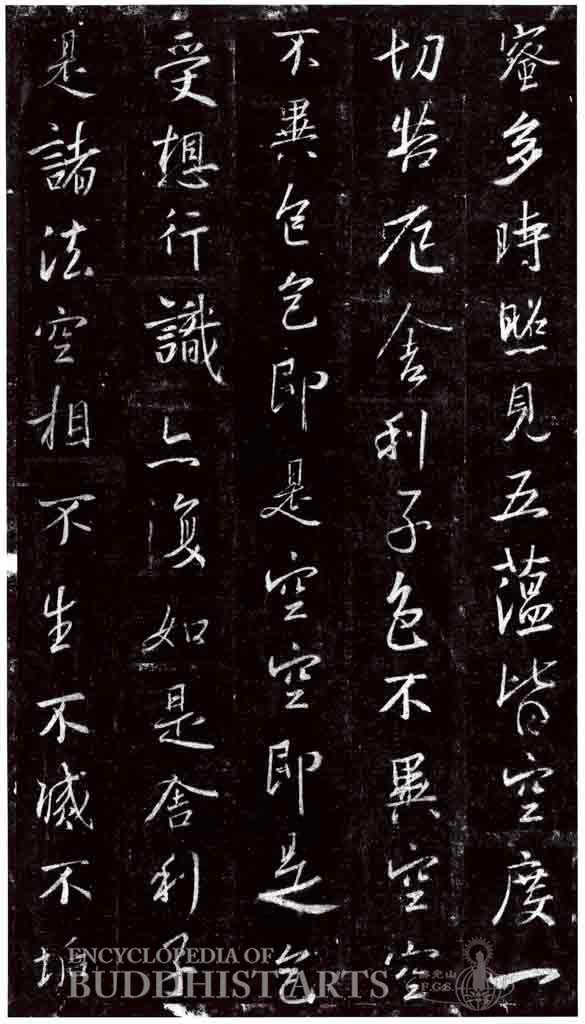 蜜多時照見五蘊皆空度一
切苦厄舍利子色不異空空
不異色色即是空空即是色
受想行識亦復如是舍利子
是諸法空相不生不滅不垢
ENCYCLOPEDIA OF
BUDDHIST ARTS
佛光山
F.G.S.